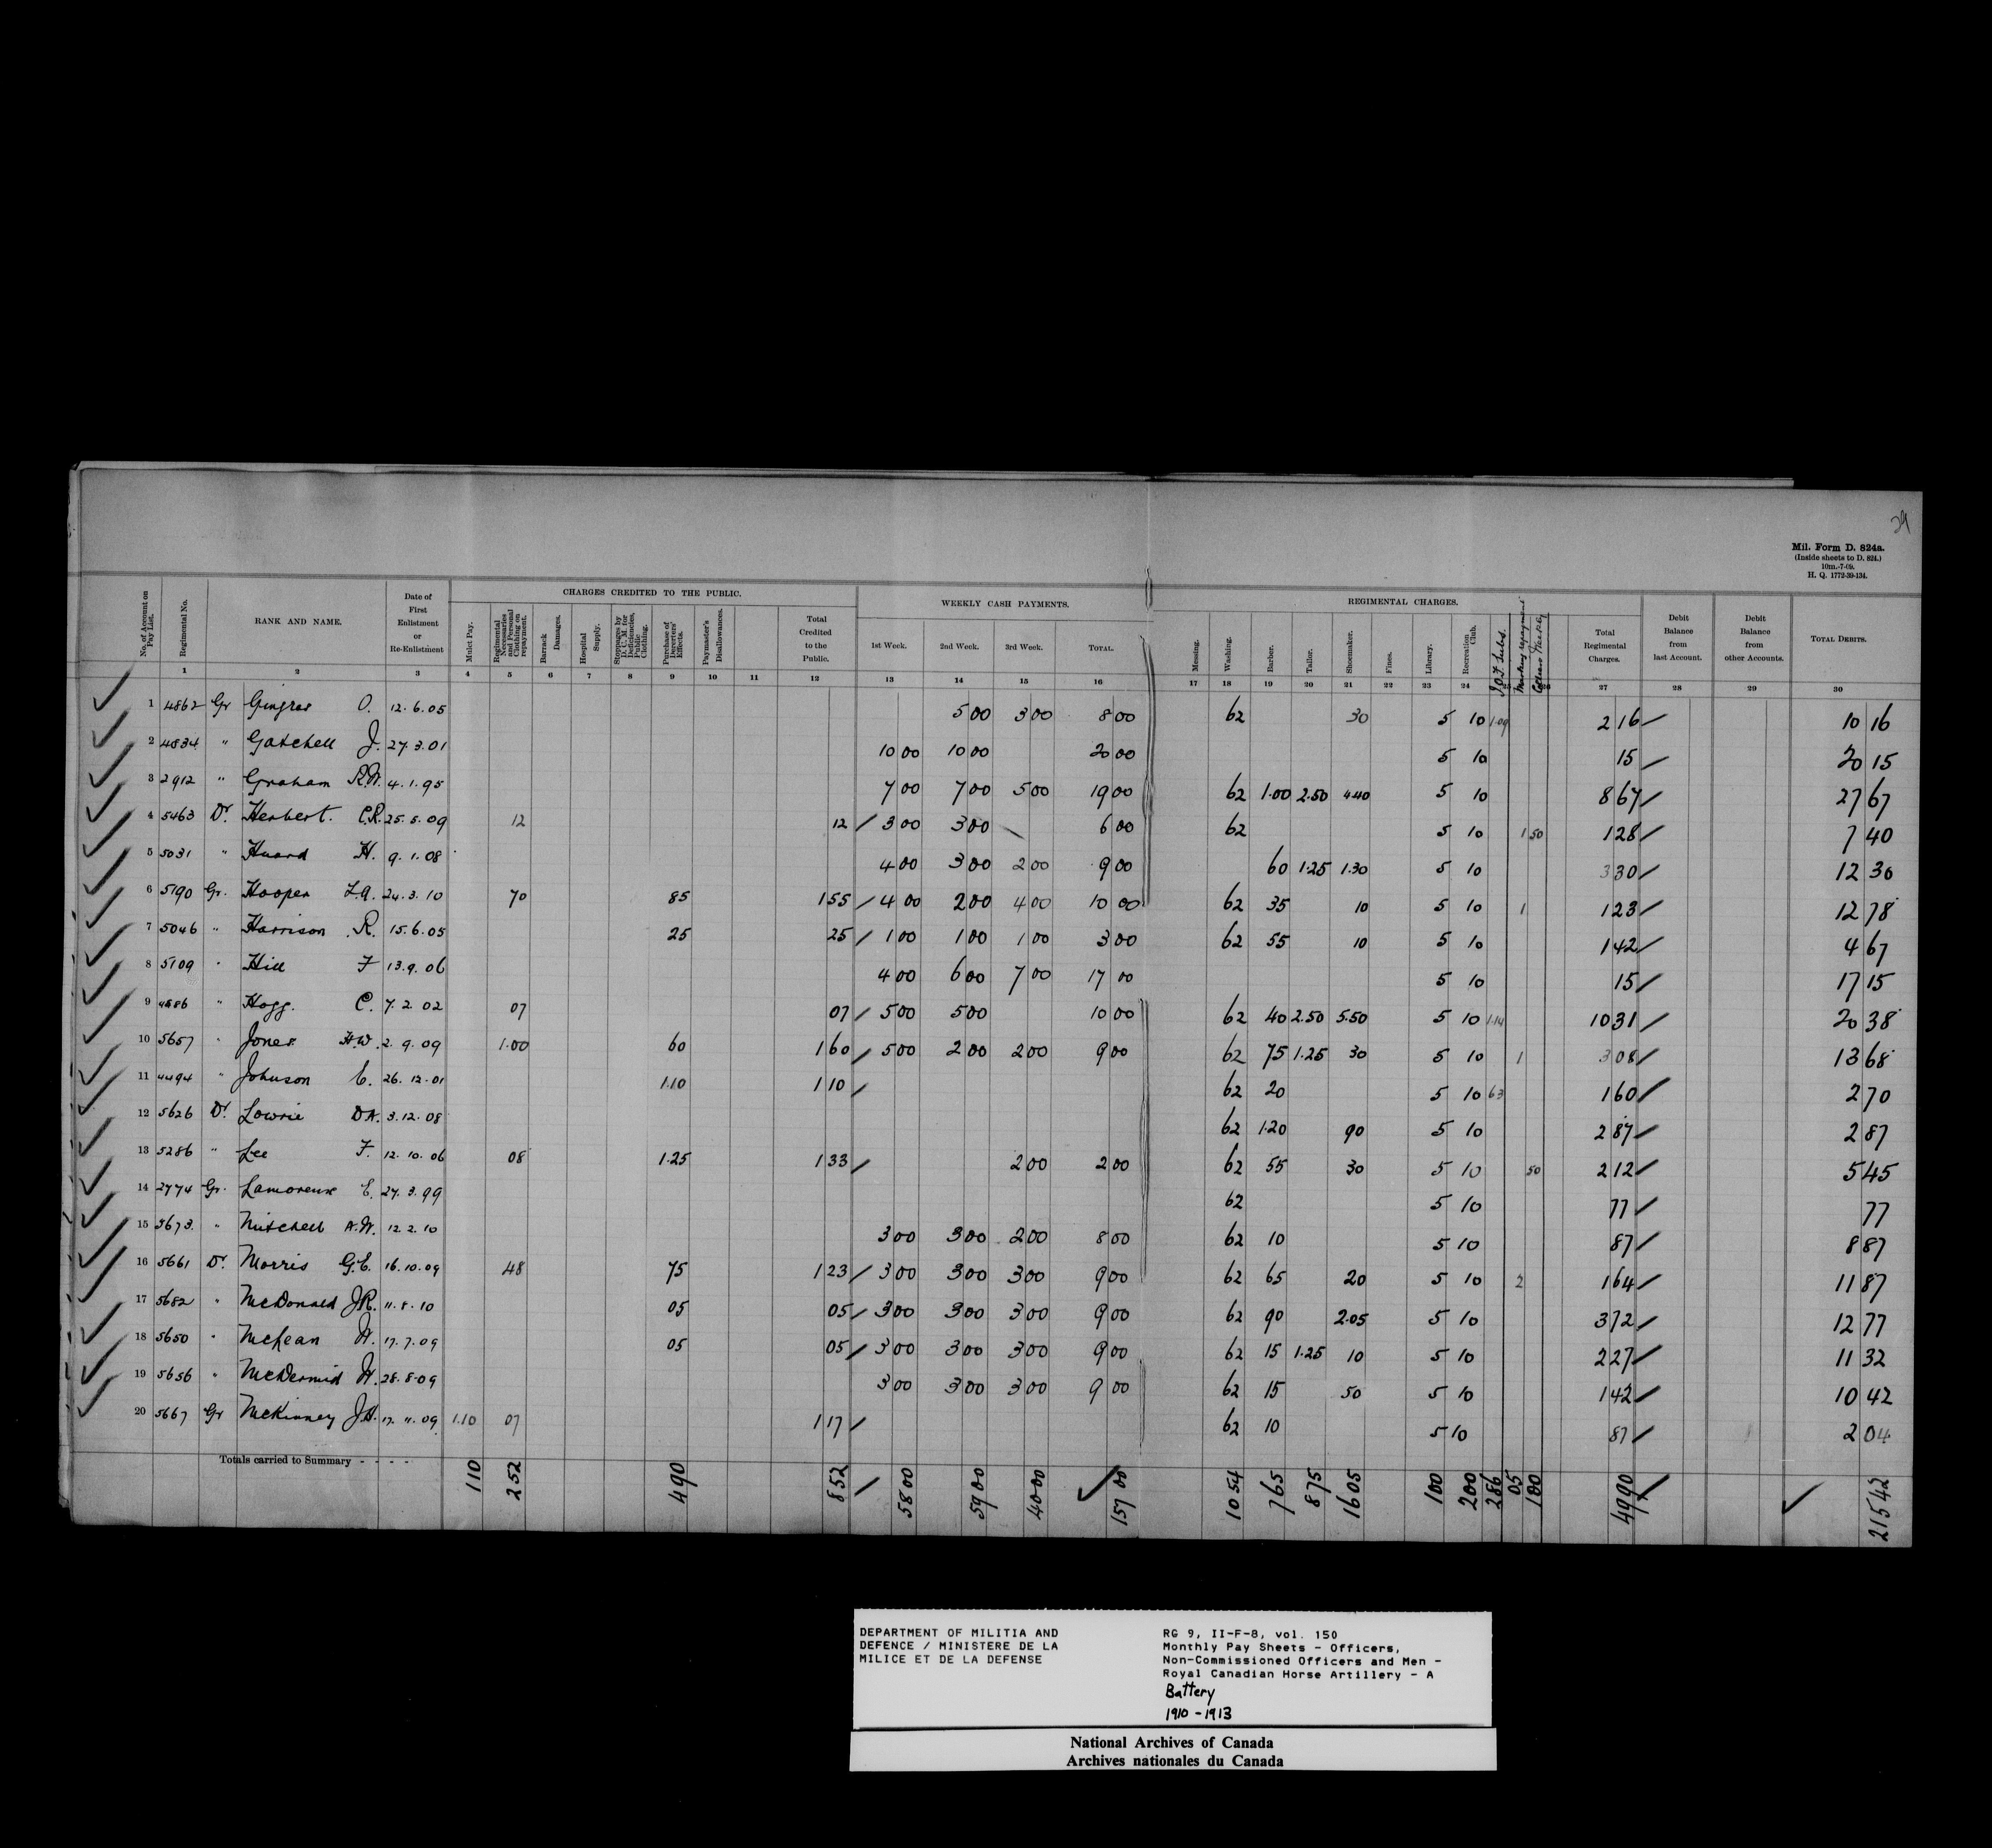 29
Mil. Form D. 824a.
(Inside sheets to D. 824.)
10m.-7-09.
H. Q. 1772-39-134.
CHARGES CREDITED TO THE PUBLIC. WEEKLY CASH PAYMENTS. REGIMENTAL CHARGES.
No. of Account on Pay List. Regimental No. RANK AND NAME. Date of First Enlistment or Re-Enlistment Mulct Pay. Regimental Necessaries and Personal Clothing on repayment. Barrack Damages. Hospital Supply. Stoppages by D. C. M. for Deficiencies, Public Clothing. Purchase of Deserters' Effects. Paymaster's Disallowances. Total Credited to the Public. 1st Week. 2nd Week. 3rd Week. TOTAL. Messing. Washing. Barber. Tailor. Shoemaker. Fines. Library. Recreation Club. I.O.F. Subs. Marking repayment Total Regimental Charges. Debit Balance from last Account. Debit Balance from other Accounts. TOTAL DEBITS.
1 2 3 4 5 6 7 8 9 10 11 12 13 14 15 16 17 18 19 20 21 22 23 24 25 26 27 28 29 30
1 4862 Gr Gingras O. 12.6.05 5 00 3 00 8 00 62 30 5 10 1.09 2 16 10 16
2 4834 " Gatchell J. 27.3.01 10 00 10 00 20 00 5 10 15 20 15
3 2912 " Graham R.W. 4.1.95 7 00 7 00 5 00 19 00 62 1.00 2.50 4.40 5 10 8 67 27 67
4 5463 Dr. Herbert. C.R. 25.5.09 12 12 3 00 3 00 6 00 62 5 10 1 50 1 28 7 40
5 5031 " Huard H. 9.1.08 4 00 3 00 2 00 9 00 60 1.25 1.30 5 10 3 30 12 30
6 5190 Gr. Hooper L.A. 24.3.10 70 85 1 55 4 00 2 00 4 00 10 00 62 35 10 5 10 1 1 23 12 78
7 5046 " Harrison R. 15.6.05 25 25 1 00 1 00 1 00 3 00 62 55 10 5 10 1 42 4 67
8 5109 " Hill F 13.9.06 4 00 6 00 7 00 17 00 5 10 15 17 15
9 4686 " Hogg. C. 7.2.02 07 07 5 00 5 00 10 00 62 40 2.50 5.50 5 10 1.14 10 31 20 38
10 5657 " Jones H.W. 2.9.09 1.00 60 1 60 5 00 2 00 2 00 9 00 62 75 1.25 30 5 10 1 3 08 13 68
11 4494 " Johnson E. 26.12.01 1.10 1 10 62 20 5 10 63 1 60 2 70
12 5626 Dr. Lowrie D.A. 3.12.08 62 1.20 90 5 10 2 87 2 87
13 5286 " Lee F. 12.10.06 08 1.25 1 33 2 00 2 00 62 55 30 5 10 50 2 12 5 45
14 2774 Gr. Lamoreux E. 27.3.99 62 5 10 77 77
15 5673. " Mitchell A.W. 12.2.10 3 00 3 00 2 00 8 00 62 10 5 10 87 8 87
16 5661 Dr. Morris G.E. 16.10.09 48 75 1 23 3 00 3 00 3 00 9 00 62 65 20 5 10 2 1 64 11 87
17 5682 " McDonald J.R. 11.8.10 05 05 3 00 3 00 3 00 9 00 62 90 2.05 5 10 3 72 12 77
18 5650 " McLean W. 17.7.09 05 05 3 00 3 00 3 00 9 00 62 15 1.25 10 5 10 2 27 11 32
19 5656 " McDermid W. 28.8.09 3 00 3 00 3 00 9 00 62 15 50 5 10 1 42 10 42
20 5667 Gr McKinney J.H. 17.11.09 1.10 07 1 17 62 10 5 10 87 2 04
Totals carried to Summary - - - - 1 10 2 52 4 90 8 52 58 00 59 00 40 00 157 00 10 54 7 65 8 75 16 05 1 00 2 00 2 86 05 1 00 49 90 215 42
DEPARTMENT OF MILITIA AND
DEFENCE / MINISTERE DE LA
MILICE ET DE LA DEFENSE
RG 9, II-F-8, vol. 150
Monthly Pay Sheets - Officers,
Non-Commissioned Officers and Men -
Royal Canadian Horse Artillery - A
Battery
1910 - 1913
National Archives of Canada
Archives nationales du Canada